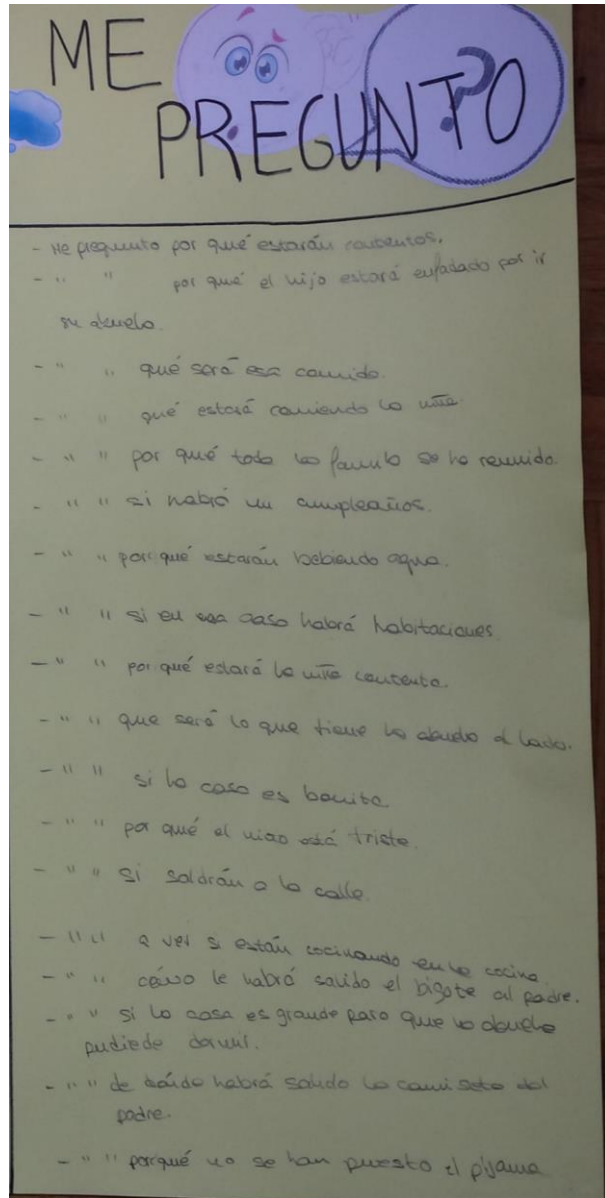 ME
PREGUNTO
?
- Me pregunto por qué estarán contentos.
- " " por qué el hijo estará enfadado por ir
su abuelo.
- " " qué será esa comida.
- " " qué estará comiendo la niña.
- " " por qué toda la familia se ha reunido.
- " " si habrá un cumpleaños.
- " " por qué estarán bebiendo agua.
- " " si en esa casa habrá habitaciones.
- " " por qué estará la niña contenta.
- " " que será lo que tiene la abuela al lado.
- " " si la casa es bonita.
- " " por qué el niño está triste.
- " " si saldrán a la calle.
- " " a ver si están cocinando en la cocina.
- " " cómo le habrá salido el bigote al padre.
- " " si la casa es grande para que la abuela
pudiede dormir.
- " " de dónde habrá salido la camiseta del
padre.
- " " porqué no se han puesto el pijama